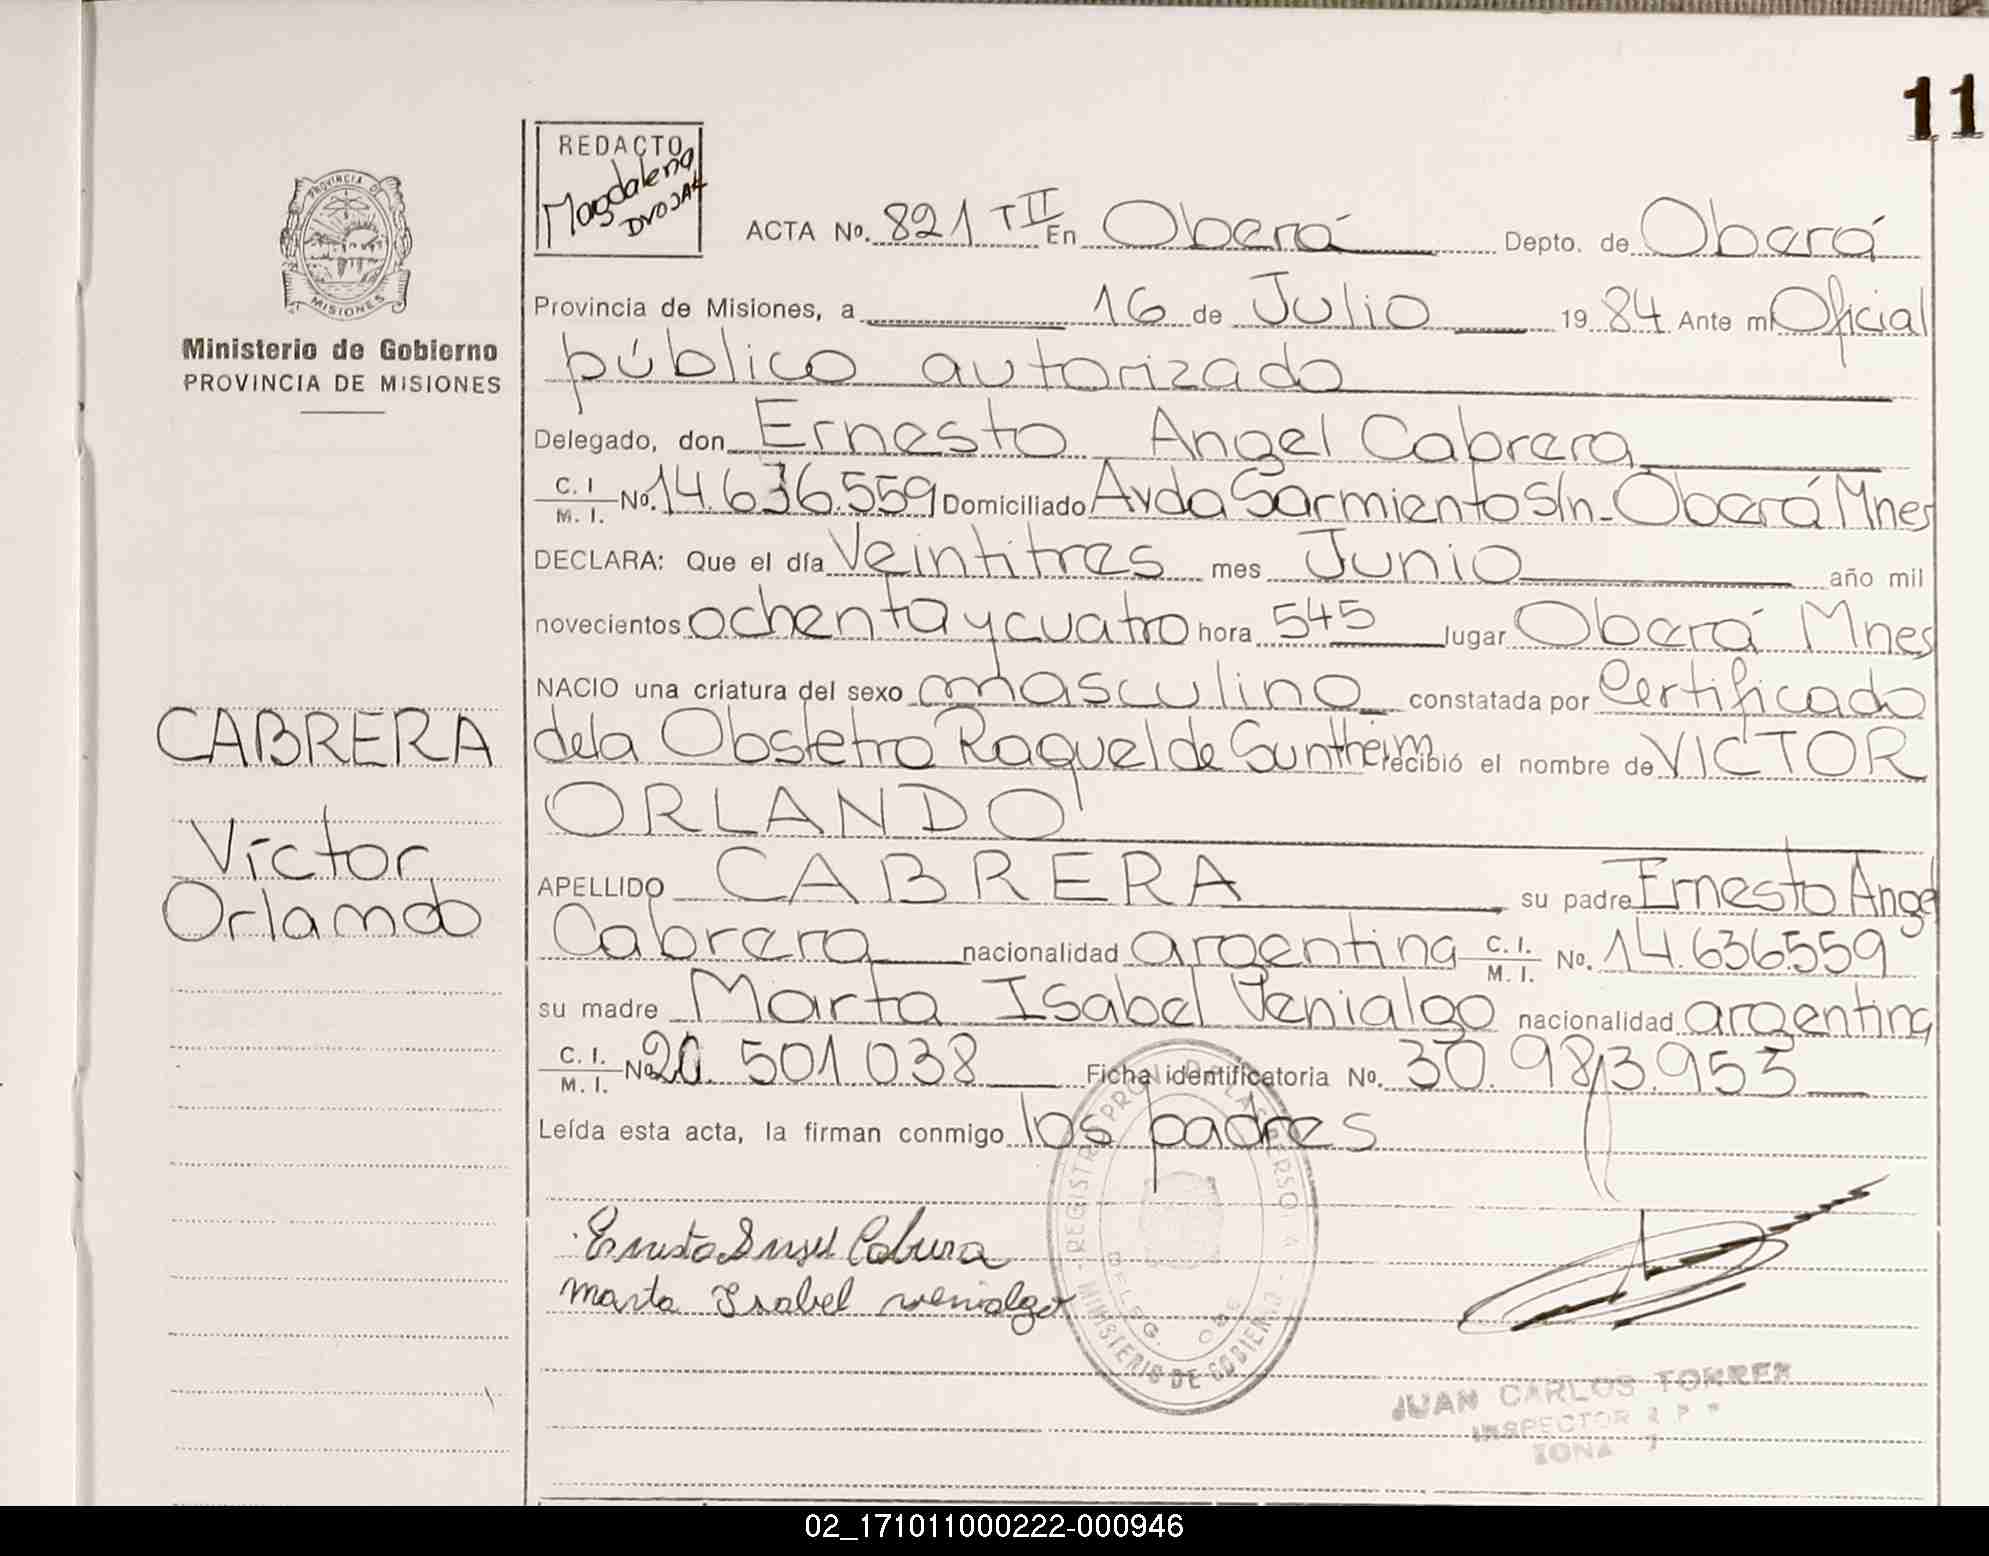 11
REDACTO
Magdalena
DVOJAK
PROVINCIA DE
MISIONES
Ministerio de Gobierno
PROVINCIA DE MISIONES
ACTA No. 821 T II En Oberá Depto. de Oberá
Provincia de Misiones, a 16 de Julio 1984 Ante mi Oficial
público autorizado
Delegado, don Ernesto Angel Cabrera
C. I. M. I. No. 14.636.559 Domiciliado Avda Sarmiento S/n - Oberá Mnes
DECLARA: Que el día Veintitres mes Junio año mil
novecientos ochenta y cuatro hora 545 lugar Oberá Mnes
NACIO una criatura del sexo masculino constatada por Certificado
CABRERA
dela Obstetra Raquel de Suntheim recibió el nombre de VICTOR
ORLANDO
Víctor
Orlando
APELLIDO CABRERA su padre Ernesto Angel
Cabrera nacionalidad argentina C. I. M. I. No. 14.636.559
su madre Marta Isabel Venialgo nacionalidad argentina
C. I. M. I. No 20.501.038 Ficha identificatoria No. 30.983.953
Leída esta acta, la firman conmigo los padres
Ernesto Angel Cabrera
Marta Isabel venialgo
MINISTERIO DE GOBIERNO
JUAN CARLOS TORRES
INSPECTOR
ZONA
02_171011000222-000946